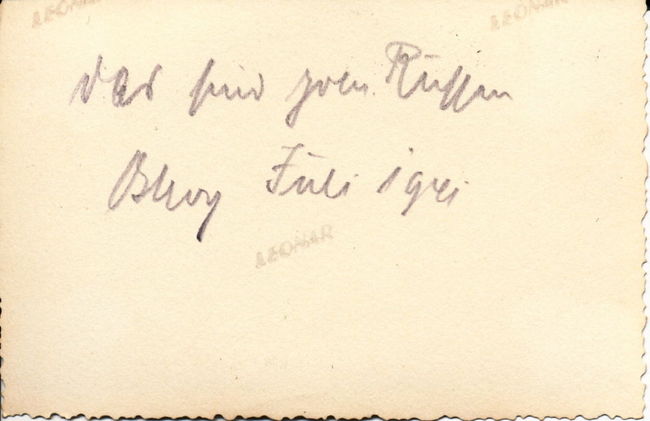 LEONAR
LEONAR
das sind Russen
Juli 1941
LEONAR